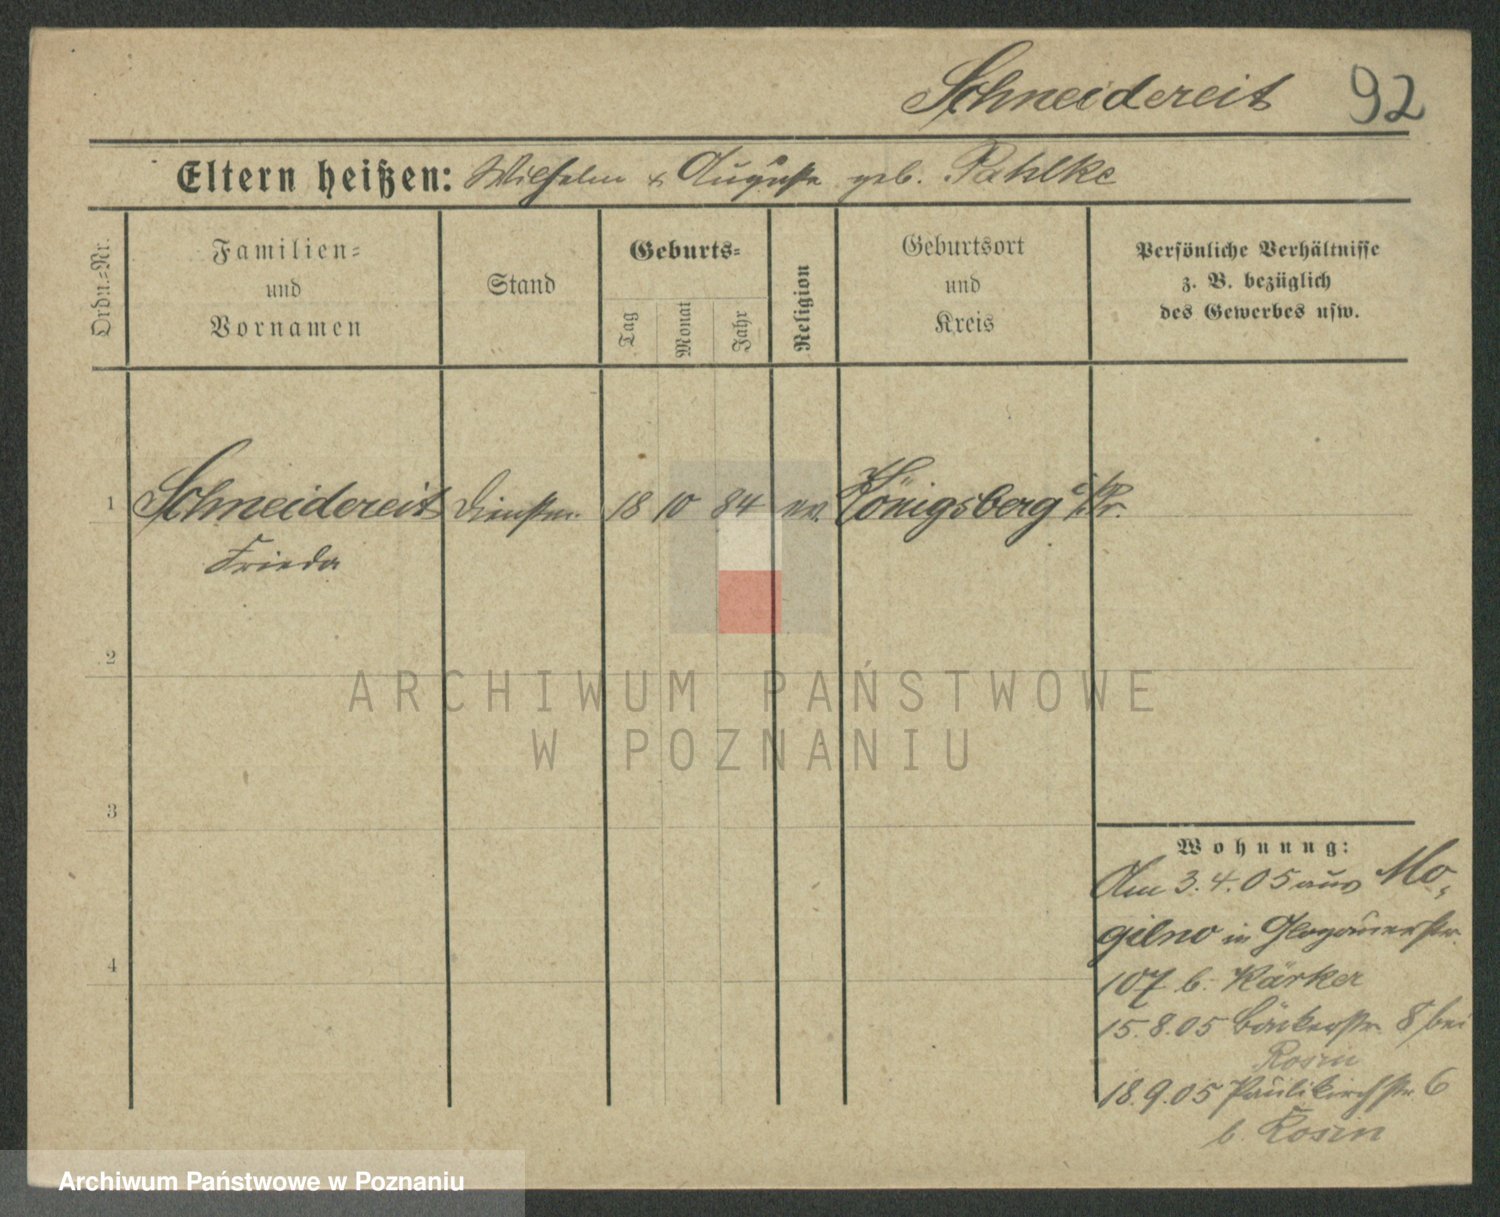 Schneidereit 92
Eltern heißen: Wilhelm & Auguste geb. Pahlke
Ordn.-Nr.
Familien-
und
Vornamen
Stand
Geburts-
Tag
Monat
Jahr
Religion
Geburtsort
und
Kreis
Persönliche Verhältnisse
z. B. bezüglich
des Gewerbes usw.
1 Schneidereit 18 10 84 ev. Königsberg Pr.
Frieda
2
3
4
Wohnung:
Am 3.4.05 aus Mo-
gilno in Glogauerstr.
107 b. Kärker
15.8.05 Bäckerstr. 8 bei
Rosin
18.9.05 Paulikirchstr. 6
b. Rosin
ARCHIWUM PAŃSTWOWE
W POZNANIU
Archiwum Państwowe w Poznaniu